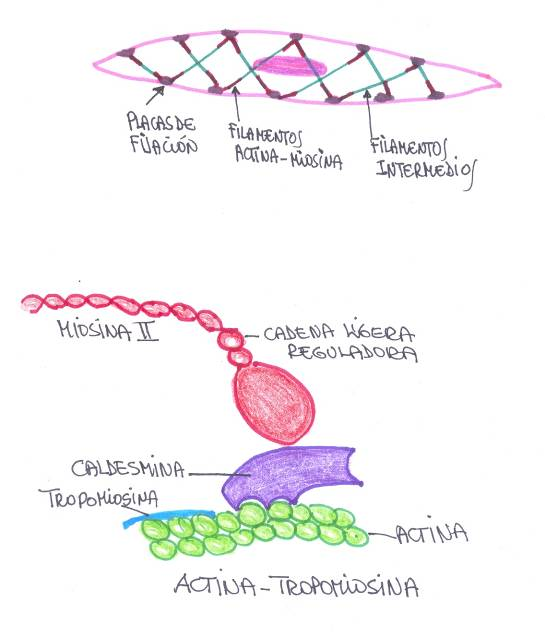 PLACAS DE
FIJACIÓN
FILAMENTOS
ACTINA-MIOSINA
FILAMENTOS
INTERMEDIOS
MIOSINA II
CADENA LIGERA
REGULADORA
CALDESMINA
TROPOMIOSINA
ACTINA
ACTINA-TROPOMIOSINA